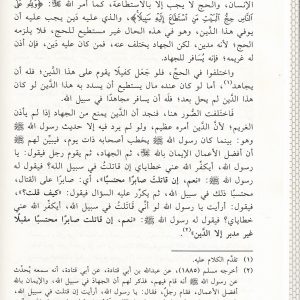 الإنسان، والحج لا يجب إلا بالاستطاعة، كما أمر الله ﷻ: ﴿وَلِلَّهِ عَلَى
النَّاسِ حِجُّ الْبَيْتِ مَنِ اسْتَطَاعَ إِلَيْهِ سَبِيلًا﴾، والذي عليه دَين يجب أن
يوفي هذا الدَّين، وهو في هذه الحال غير مستطيع للحج، فلا يلزمه
الحج؛ لأنه مدين، لكن الجهاد يختلف عنه، فمن كان عليه دَين، فإن أذن
له غريمه؛ فإنه يسافر.
واختلفوا في الحج، فلو جعَل كفيلًا يقوم على هذا الدَّين؛ فله أن
يجاهد(١)، أما لو كان عنده مال يستطيع أن يسدد به هذا الدَّين لو كان
هذا الدَّين لم يحل بعد؛ فله أن يسافر مجاهدًا في سبيل الله.
فاختلفت الصُّور هنا، فنجد أن الدَّين يمنع من الجهاد إذا لم يأذن
الغريم؛ لأنَّ الدَّين أمره عظيم، ولو لم يرد فيه إلا حديث رسول الله ﷺ
وهو: بينما كان رسول الله ﷺ يخطب أصحابه ذات يوم، فيبيِّن لهم
أن أفضل الأعمال الإيمان بالله ﷻ، ثم الجهاد، ثم يقوم رجل فيقول: يا
رسول الله، أيكفِّر الله عني خطاياي إن قاتلتُ في سبيل الله؟ فيقول له
رسول الله ﷺ: «نعم، إن قاتلت صابرًا محتسبًا»، أي: صابرًا على القتال،
محتسبًا ذلك في سبيل الله، ثم يكرِّر عليه السؤال فيقول: «كيف قلت؟»،
فيقول: أرأيت يا رسول الله لو أني قاتلتُ في سبيل الله، أيكفِّر الله عني
خطاياي؟ فيقول له رسول الله ﷺ: «نعم، إن قاتلت صابرًا محتسبًا مقبلًا
غير مدبر إلا الدَّين»(٢).
(١) تقدَّم الكلام عليه.
(٢) أخرجه مسلم (١٨٨٥)، عن عبدالله بن أبي قتادة، عن أبي قتادة، أنه سمعه يحدِّث
عن رسول الله ﷺ أنه قام فيهم، فذكر لهم أن الجهاد في سبيل الله، والإيمان بالله،
أفضل الأعمال، فقام رجلٌ، فقال: يا رسول الله، أرأيت إن قتلت في سبيل الله،